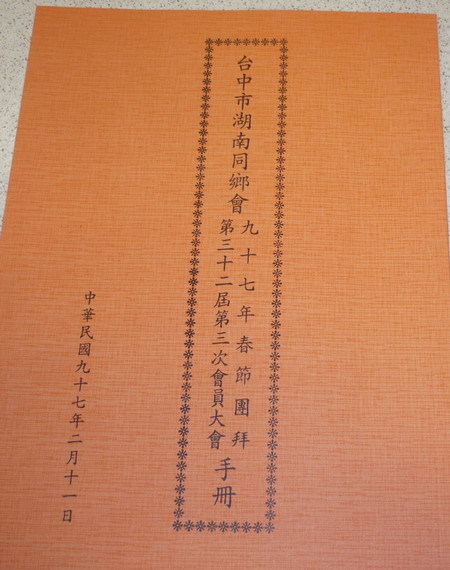 台中市湖南同鄉會
九十七年春節團拜
第三十二屆第三次會員大會
手冊
中華民國九十七年二月十一日